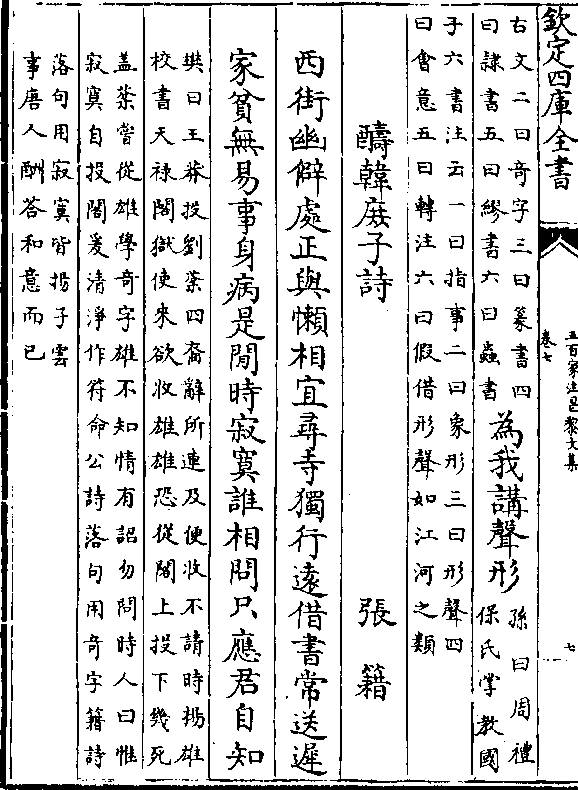 欽定四庫全書
五百家注昌黎文集
卷七
七
古文二曰奇字三曰篆書四
曰隷書五曰繆書六曰蟲書
為我講聲形
孫曰周禮
保氏掌教國
子六書注云一曰指事二曰象形三曰形聲四
曰會意五曰轉注六曰假借形聲如江河之類
醻韓庶子詩　張籍
西街幽僻處正與懶相宜尋寺獨行遠借書常送遲
家貧無易事身病是閒時寂寞誰相問只應君自知
樊曰王莽投劉棻四裔辭所連及便收不請時揚雄
校書天禄閣獄使來欲收雄雄恐從閣上投下幾死
蓋棻嘗從雄學奇字雄不知情有詔勿問時人曰惟
寂寞自投閣爰清淨作符命公詩落句用奇字籍詩
落句用寂寞皆揚子雲
事唐人酬答和意而已